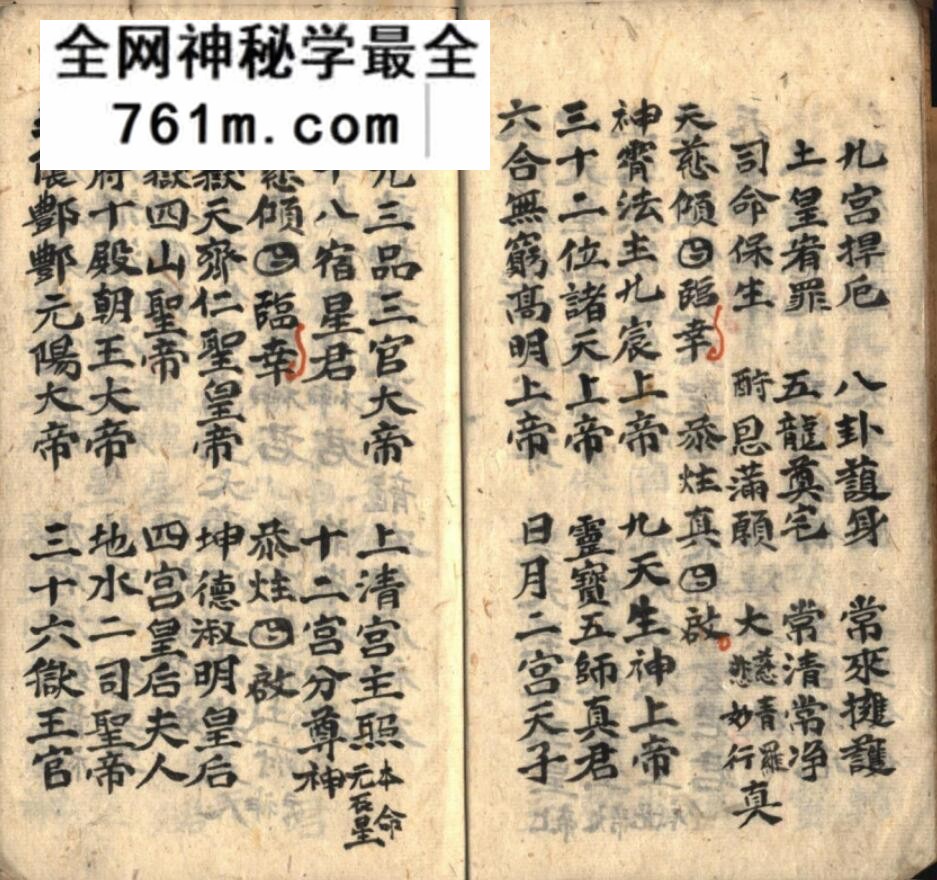 全网神秘学最全
761m.com
九宮捍厄 八卦護身 常來擁護
土皇宥罪 五龍奠宅 常清常净
司命保生 酧恩滿願 大慈悲青羅妙行真
天慈傾臨幸 恭炷真啟
神霄法主九宸上帝 九天生神上帝
三十二位諸天上帝 靈寶五師真君
六合無窮髙明上帝 日月二宮天子
元三品三官大帝 上清宮主照本命元辰星
八宿星君 十二宮分尊神
慈傾臨幸 恭炷啟
嶽天齊仁聖皇帝 坤德淑明皇后
嶽四山聖帝 四宮皇后夫人
府十殿朝王大帝 地水二司聖帝
隈酆酆元陽大帝 三十六獄王官